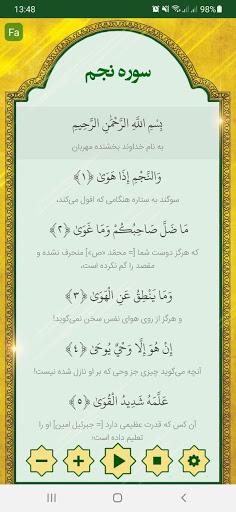 13:48
98%
Fa
سوره نجم
بِسْمِ اللَّهِ الرَّحْمَٰنِ الرَّحِيمِ
به نام خداوند بخشنده مهربان
وَالنَّجْمِ إِذَا هَوَىٰ ﴿١﴾
سوگند به ستاره هنگامی که افول می‌کند،
مَا ضَلَّ صَاحِبُكُمْ وَمَا غَوَىٰ ﴿٢﴾
که هرگز دوست شما [= محمّد «ص»] منحرف نشده و
مقصد را گم نکرده است،
وَمَا يَنْطِقُ عَنِ الْهَوَىٰ ﴿٣﴾
و هرگز از روی هوای نفس سخن نمی‌گوید!
إِنْ هُوَ إِلَّا وَحْيٌ يُوحَىٰ ﴿٤﴾
آنچه می‌گوید چیزی جز وحی که بر او نازل شده نیست!
عَلَّمَهُ شَدِيدُ الْقُوَىٰ ﴿٥﴾
آن کس که قدرت عظیمی دارد [= جبرئیل امین] او را
تعلیم داده است؛